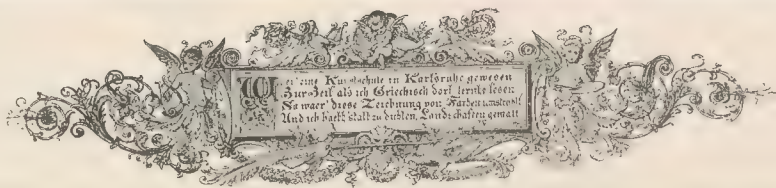 Wer eine Kunstschule in Karlsruhe gewesen
Zur Zeil als ich Griechisch dort lernte lesen
So waer diese Zeichnung von Farben umstrahlt
Und ich haett statt zu dichten, Landschaften gemalt